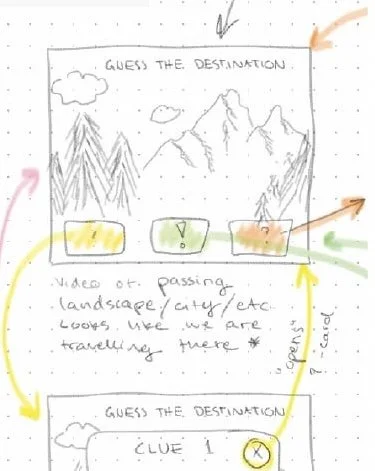 GUESS THE DESTINATION
!
?
Video of passing
landscape/city/etc.
Looks like we are
travelling there *
"opens"
?-card
GUESS THE DESTINATION
CLUE 1
X